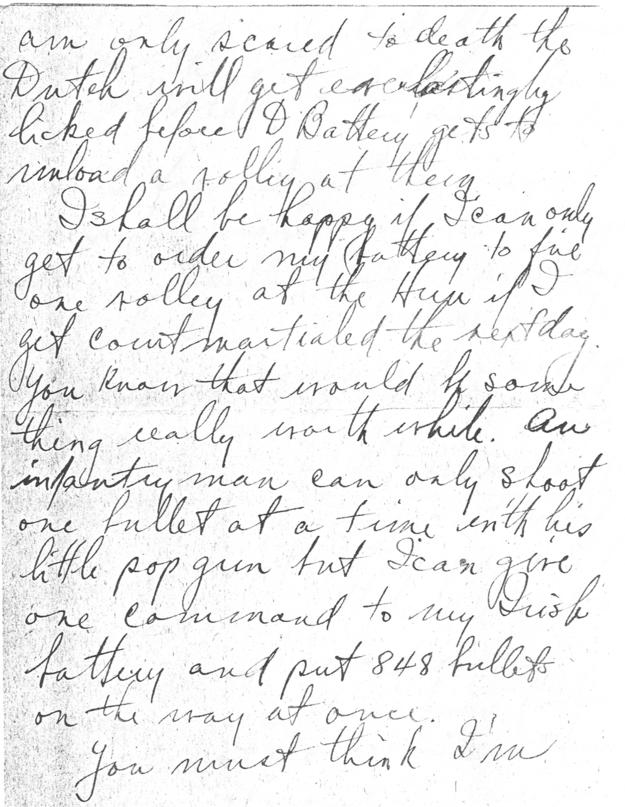 am only scared to death the
Dutch will get everlastingly
licked before D Battery gets to
unload a volley at them
I shall be happy if I can only
get to order my battery to fire
one volley at the Hun if I
get courtmartialed the next day.
You know that would be some
thing really worth while. An
infantryman can only shoot
one bullet at a time with his
little pop gun but I can give
one command to my Irish
battery and put 848 bullets
on the way at once.
You must think I'm